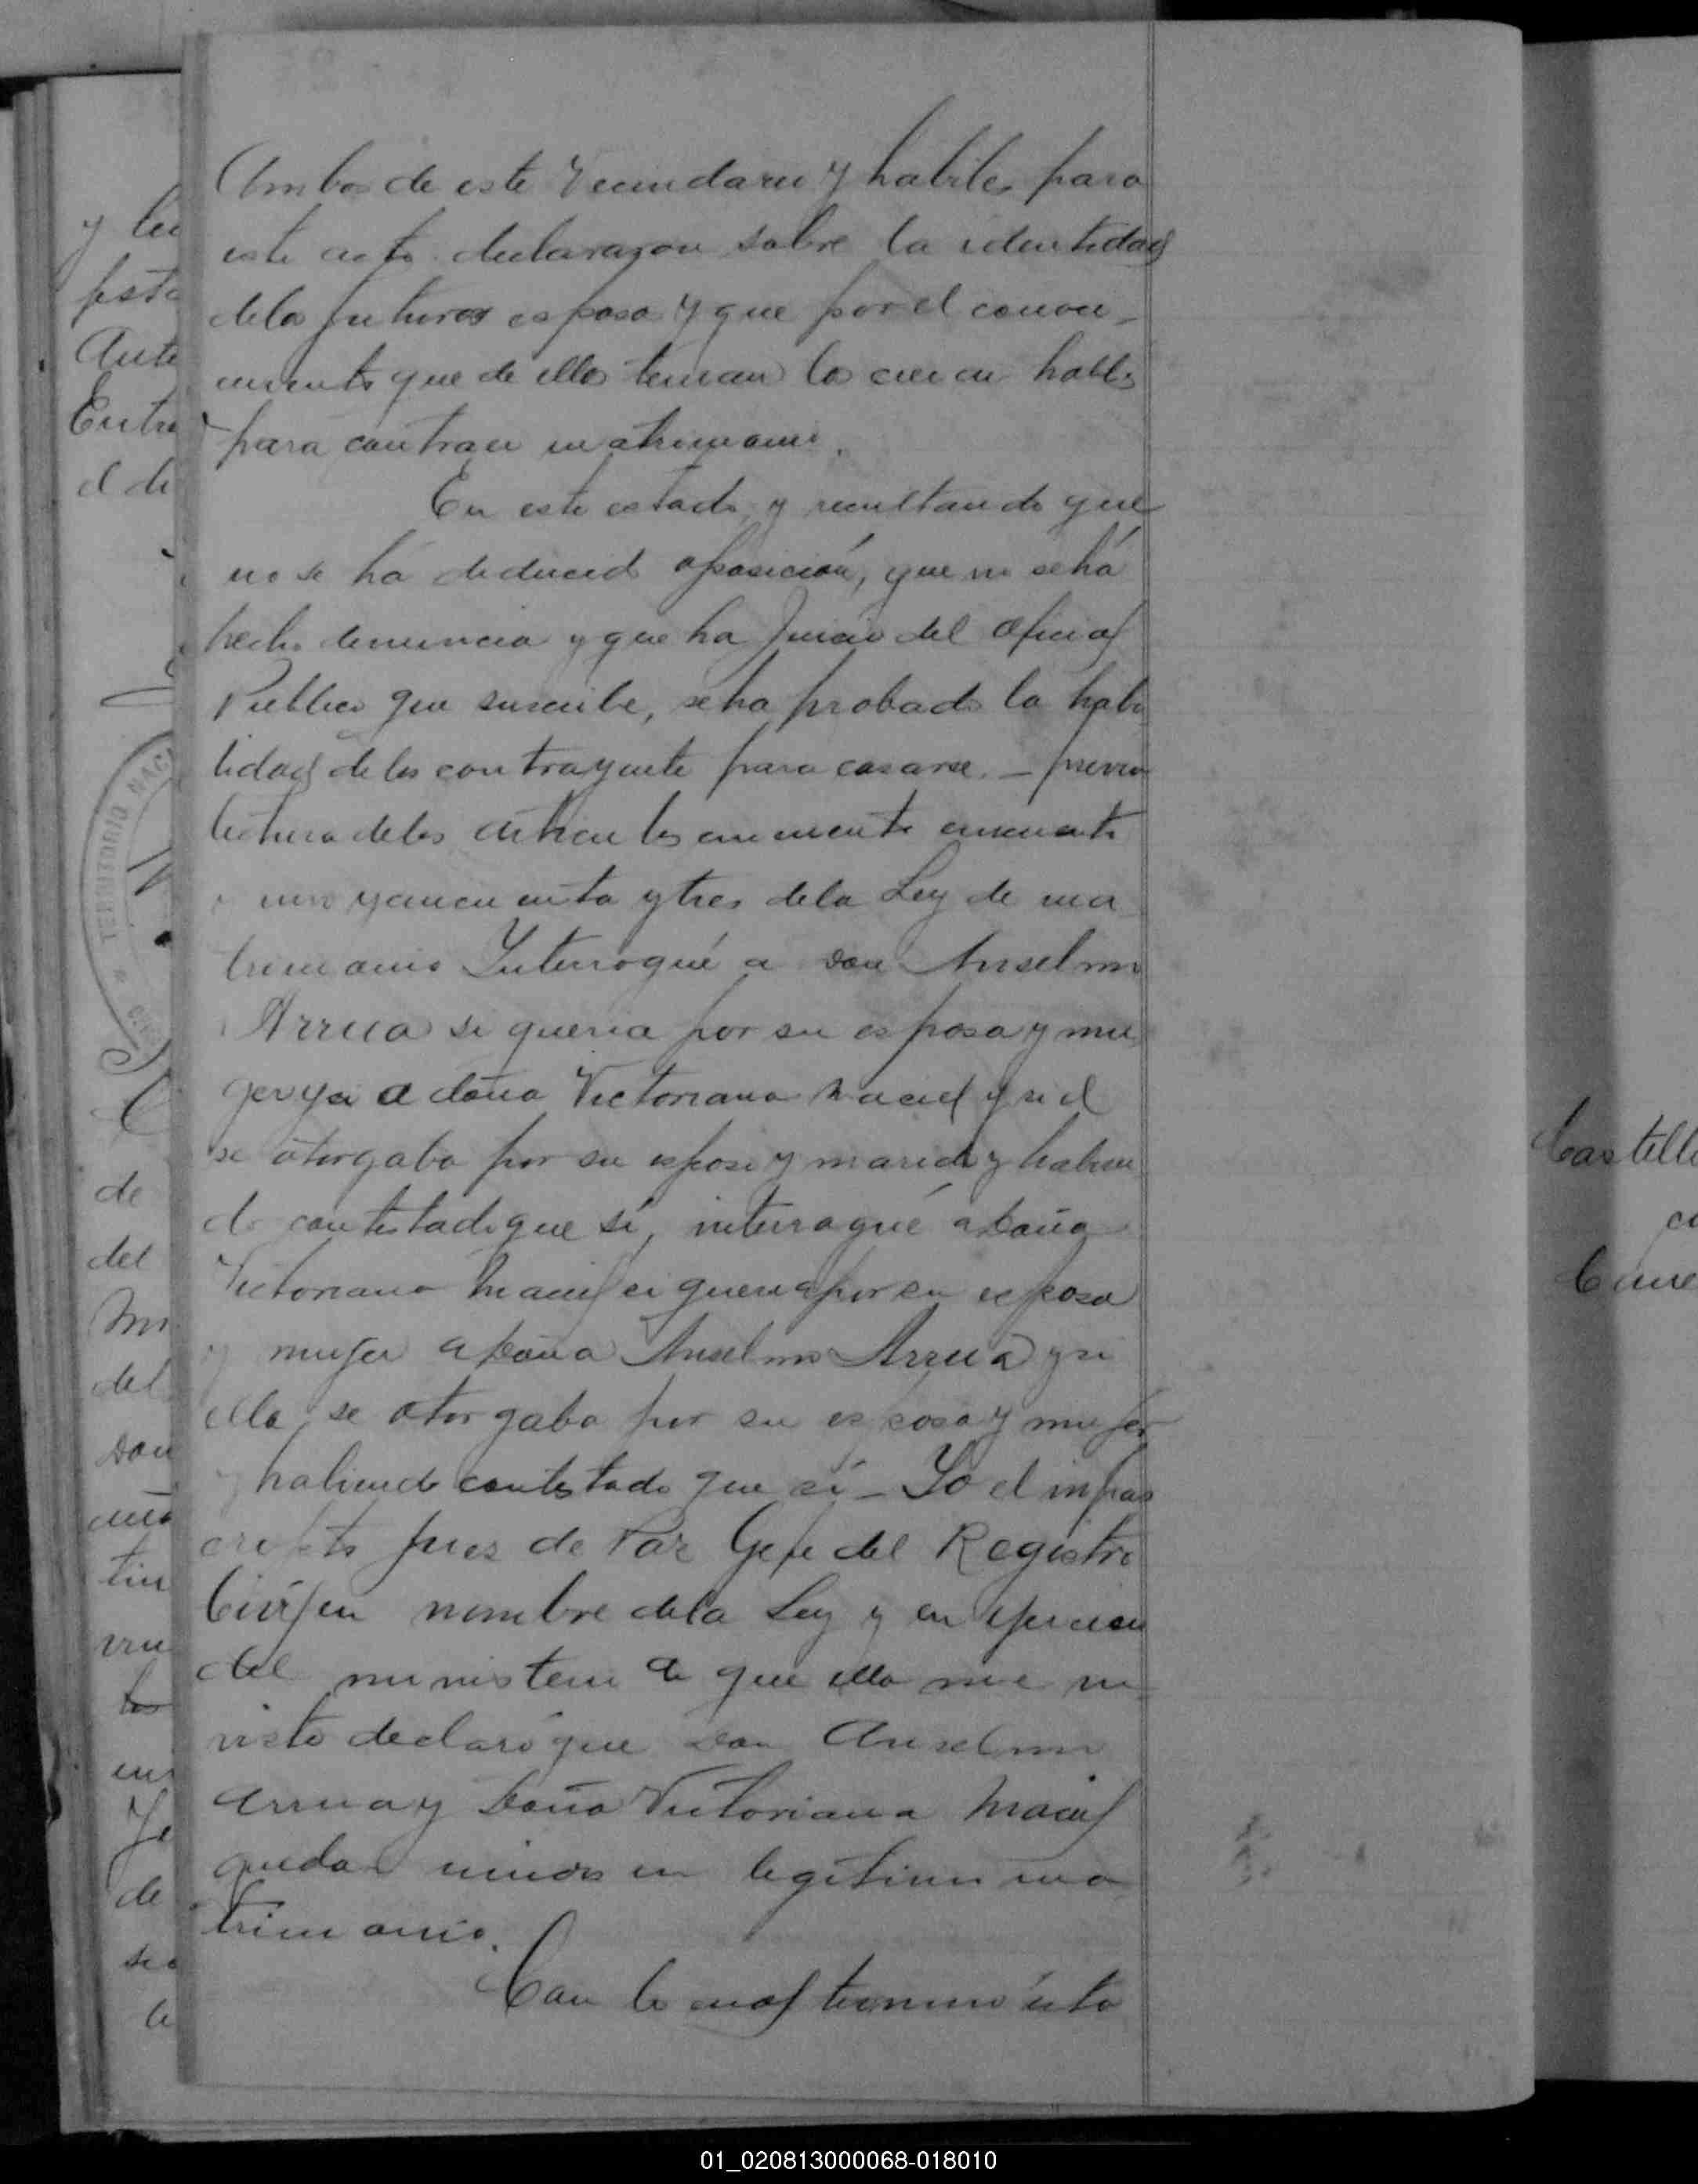 Ambos de este Vecindario y habiles para
este acto declararon sobre la identidad
de los futuros esposos y que por el conoci-
miento que de ellos tenian los creian habiles
para contraer matrimonio.
En este estado y resultando que
no se há deducido oposición, que no se há
hecho denuncia y que ha Juicio del Oficial
Publico que suscribe, se ha probado la habi
lidad de los contrayente para casarse. – previa
lectura de los articulos cincuenta cincuenta
y uno y cincuenta y tres de la Ley de ma
trimonio Interrogué a Don Anselmo
Arrua si queria por su esposa y mu
ger a doña Victoriana Maciel y si el
se otorgaba por su esposo y marido y habien
do contestado que sí, interrogué a Doña
Victoriana Maciel si queria por su esposa
y mujer a Doña Anselmo Arrua y si
ella se otorgaba por su esposa y mujer
y habiendo contestado que sí – Yo el infras
cripto Juez de Paz Gefe del Registro
Civil en nombre de la Ley y en ejercicio
del ministerio de que ella me in
viste declaro que Don Anselmo
Arrua y Doña Victoriana Maciel
quedan unidos en legitimo ma
trimonio.
Con lo cual terminó ésta
y
festa
Ante
Entre
el di
TERRITORIO NACI
de
del
del
Don
tin
los
de
Castell
01_020813000068-018010